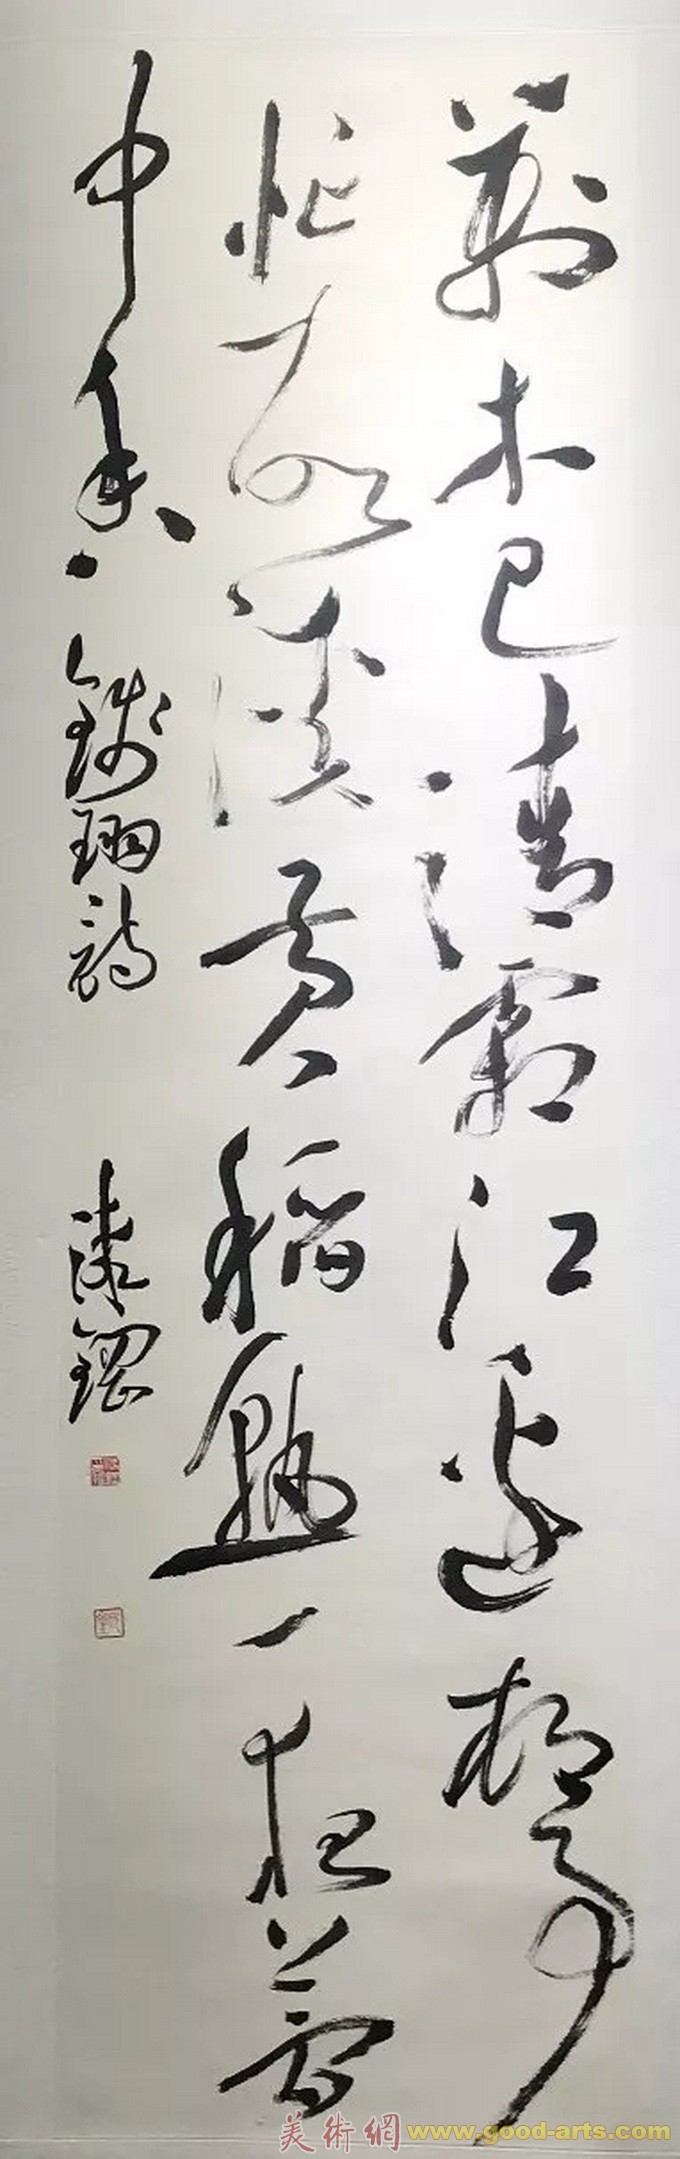 萬木已清霜江邊村事
忙故溪黃稻熟一夜夢
中香錢珝詩 漆鋼
美術網 www.good-arts.com